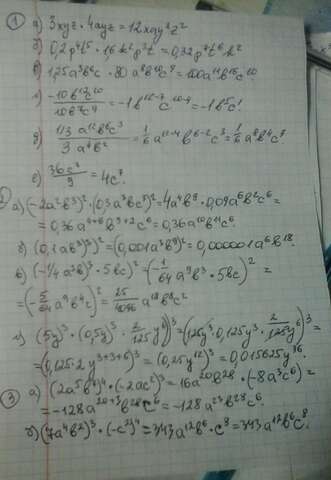 ① а) 3xyz · 4ayz = 12xay²z²
б) 0,2p⁴t⁵ · 1,6k²p³t = 0,32p⁷t⁶k²
в) 1,25a³b⁶c · 80a⁸b¹⁰c⁹ = 100a¹¹b¹⁶c¹⁰
г) -10b¹²c¹⁰ / 10b⁷c⁹ = -1b¹²⁻⁷c¹⁰⁻⁹ = -1b⁵c¹
д) a¹²b⁶c³ / 3a⁴b² = 1/6 a¹²⁻⁴b⁶⁻²c³ =
е) 36c⁷/9 = 4c⁷.
② а) (-2a²b³)² · (0,3a³bc³)² = 4a⁴b⁶ · 0,09a⁶b²c⁶ =
= 0,36a⁴⁺⁶b⁶⁺²c⁶ = 0,36a¹⁰b¹¹c⁶.
б) (0,1ab³)³)² = (0,001a³b⁹)² = 0,000001a⁶b¹⁸.
в) (-1/4a³b)³ · 5bc)² = (-1/64a⁹b³ · 5bc)² =
= (-5/64a⁹b⁴c)² = 25/4096a¹⁸b⁸c²
г) (5y)³ · (0,5y)³ · 2/125y⁶)³ = (125y³ · 0,125y³ · 2/125y⁶)³
= (0,125 · 2y³⁺³⁺⁶)³ = (0,25y¹²)³ = 0,015625y³⁶.
③ а) (2a⁵b⁷)⁴ · (-2ac²)³ = 16a²⁰b²⁸ · (-8a³c⁶) =
= -128a²⁰⁺³b²⁸c⁶ = -128a²³b²⁸c⁶.
б) (7a⁴b²)³ · (-c²)⁴ = 343a¹²b⁶ · c⁸ = 343a¹²b⁶c⁸.